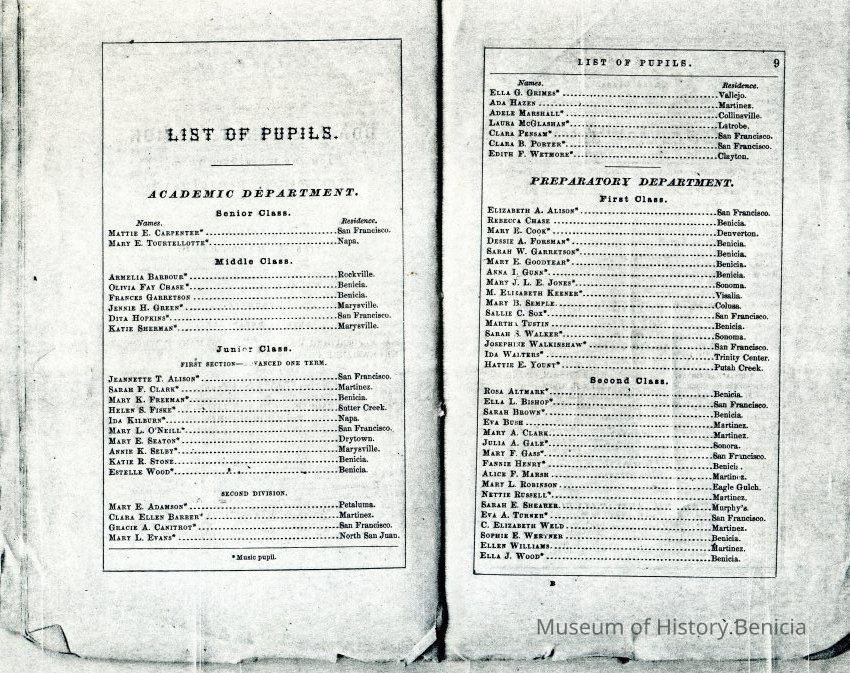 LIST OF PUPILS.
ACADEMIC DEPARTMENT.
Senior Class.
Names. Residence.
MATTIE E. CARPENTER* San Francisco.
MARY E. TOURTELLOTTE* Napa.
Middle Class.
ARMELIA BARBOUR* Rockville.
OLIVIA FAY CHASE* Benicia.
FRANCES GARRETSON Benicia.
JENNIE H. GREEN* Marysville.
DITA HOPKINS* San Francisco.
KATIE SHERMAN* Marysville.
Junior Class.
FIRST SECTION— VANCED ONE TERM.
JEANNETTE T. ALISON* San Francisco.
SARAH F. CLARK* Martinez.
MARY K. FREEMAN* Benicia.
HELEN S. FISKE* Sutter Creek.
IDA KILBURN* Napa.
MARY L. O'NEILL* San Francisco.
MARY E. SEATON* Drytown.
ANNIE K. SELBY* Marysville.
KATIE R. STONE Benicia.
ESTELLE WOOD* Benicia.
SECOND DIVISION.
MARY E. ADAMSON* Petaluma.
CLARA ELLEN BARBER* Martinez.
GRACIE A. CANITROT* San Francisco.
MARY L. EVANS* North San Juan.
*Music pupil.
LIST OF PUPILS. 9
Names. Residence.
ELLA G. GRIMES* Vallejo.
ADA HAZEN Martinez.
ADELE MARSHALL* Collinsville.
LAURA MCGLASHAN* Latrobe.
CLARA PENSAM* San Francisco.
CLARA B. PORTER* San Francisco.
EDITH F. WETMORE* Clayton.
PREPARATORY DEPARTMENT.
First Class.
ELIZABETH A. ALISON* San Francisco.
REBECCA CHASE Benicia.
MARY E. COOK* Denverton.
DESSIE A. FORSMAN* Benicia.
SARAH W. GARRETSON* Benicia.
MARY E. GOODYEAR* Benicia.
ANNA I. GUNN* Benicia.
MARY J. L. E. JONES* Sonoma.
M. ELIZABETH KEENER* Visalia.
MARY B. SEMPLE Colusa.
SALLIE C. SOX* San Francisco.
MARTHA TUSTIN Benicia.
SARAH S. WALKER* Sonoma.
JOSEPHINE WALKINSHAW* San Francisco.
IDA WALTERS* Trinity Center.
HATTIE E. YOUNT* Putah Creek.
Second Class.
ROSA ALTMARK* Benicia.
ELLA L. BISHOP* San Francisco.
SARAH BROWN* Benicia.
EVA BUSH Martinez.
MARY A. CLARK Martinez.
JULIA A. GALE* Sonora.
MARY F. GASS* San Francisco.
FANNIE HENRY* Benicia.
ALICE F. MARSH Martinez.
MARY L. ROBINSON Eagle Gulch.
NETTIE RUSSELL* Martinez.
SARAH E. SHEARER Murphy's.
EVA A. TURNER* San Francisco.
C. ELIZABETH WELD Martinez.
SOPHIE E. WERTNER Benicia.
ELLEN WILLIAMS Martinez.
ELLA J. WOOD* Benicia.
B
Museum of History Benicia